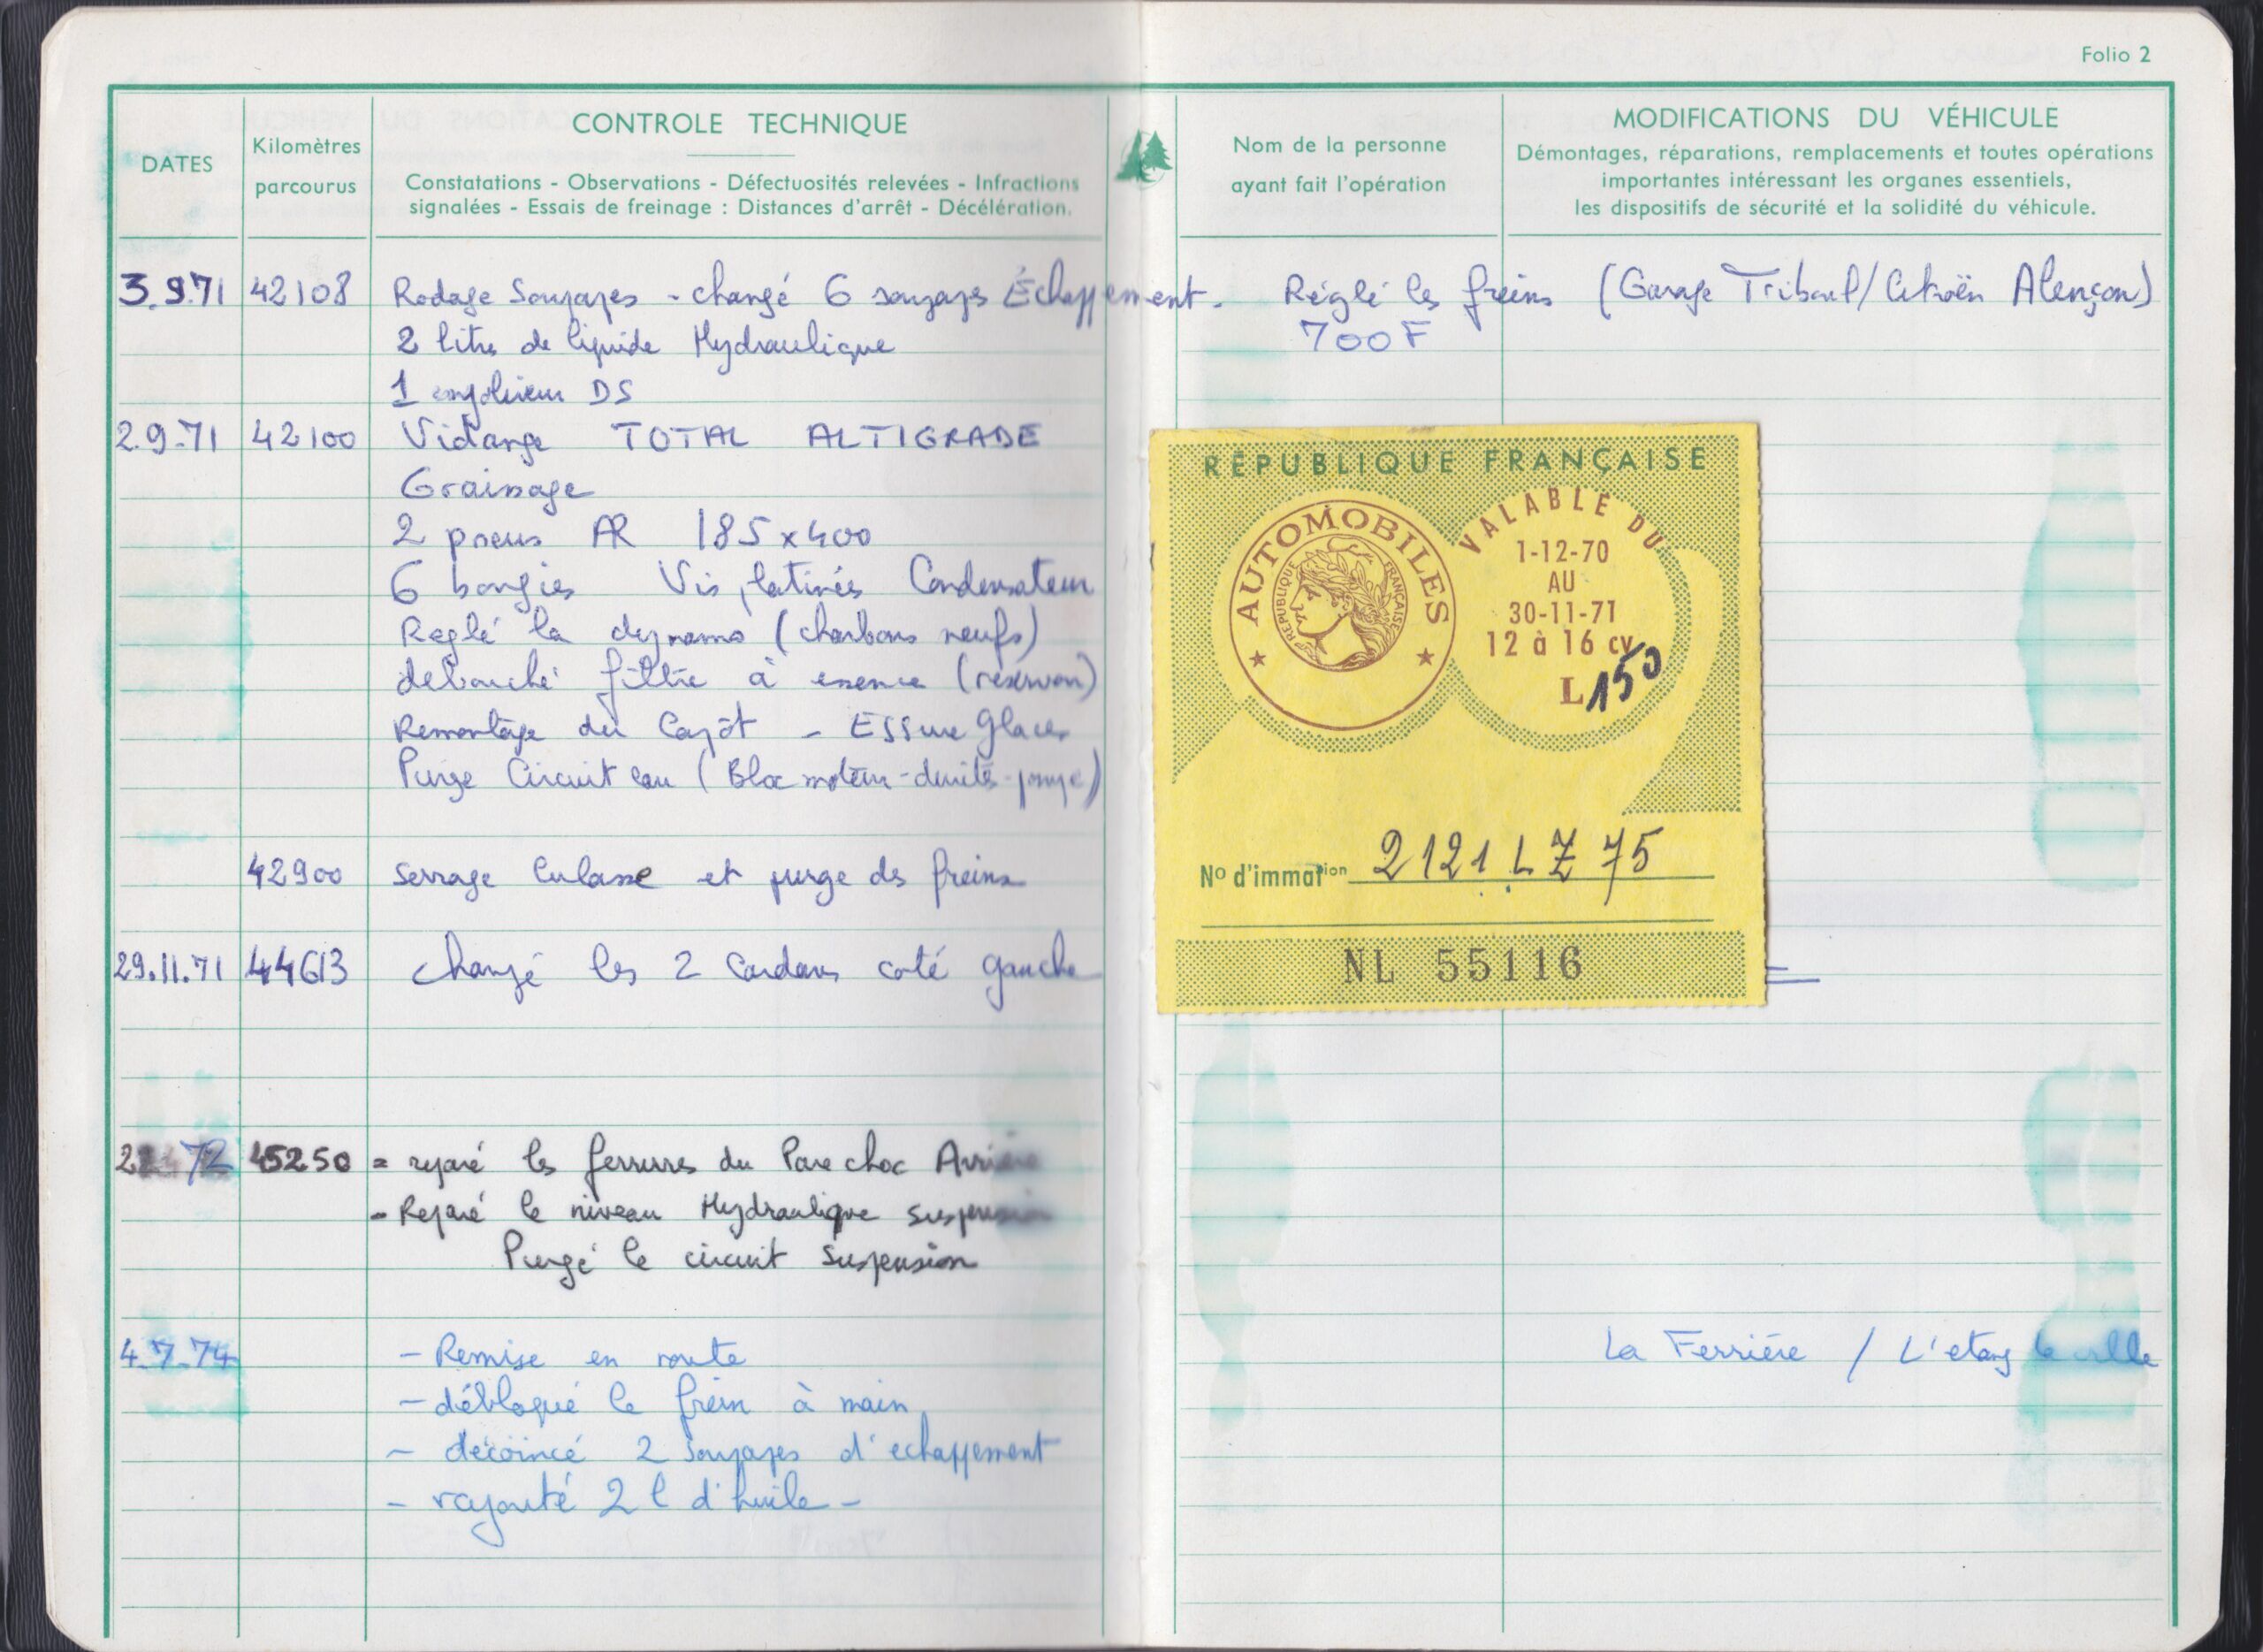 Folio 2
DATES
Kilomètres
parcourus
CONTROLE TECHNIQUE
Constatations - Observations - Défectuosités relevées - Infractions
signalées - Essais de freinage : Distances d'arrêt - Décélération.
Nom de la personne
ayant fait l'opération
MODIFICATIONS DU VÉHICULE
Démontages, réparations, remplacements et toutes opérations
importantes intéressant les organes essentiels,
les dispositifs de sécurité et la solidité du véhicule.
3.9.71 42108 Rodage Soupapes - changé 6 soupapes Échappement - Réglé les freins (Garage Tribout/Citroën Alençon)
2 litres de liquide Hydraulique 700F
1 enjoliveur DS
2.9.71 42100 Vidange TOTAL ALTIGRADE
Graissage
2 pneus AR 185x400
6 bougies Vis platinés Condensateur
Reglé la dynamo (charbons neufs)
debouché filtre à essence (reservoir)
Remontage du Capôt - ESSuie Glaces
Purge Circuit eau (Bloc moteur - durite - pompe)
42900 Serrage Culasse et purge des freins
29.11.71 44613 changé les 2 Cardans coté gauche
72 45250 = reparé les ferrures du Pare choc Arriere
- Reparé le niveau Hydraulique Suspension
Purgé le circuit Suspension
4.7.74 - Remise en route La Ferrière / L'etang la ville
- débloqué le frein à main
- decoincé 2 Soupapes d'echappement
- rajouté 2 l d'huile -
RÉPUBLIQUE FRANÇAISE
AUTOMOBILES
RÉPUBLIQUE FRANÇAISE
VALABLE DU
1-12-70
AU
30-11-71
12 à 16 cv
L150
No d'immation 2121 LZ 75
NL 55116